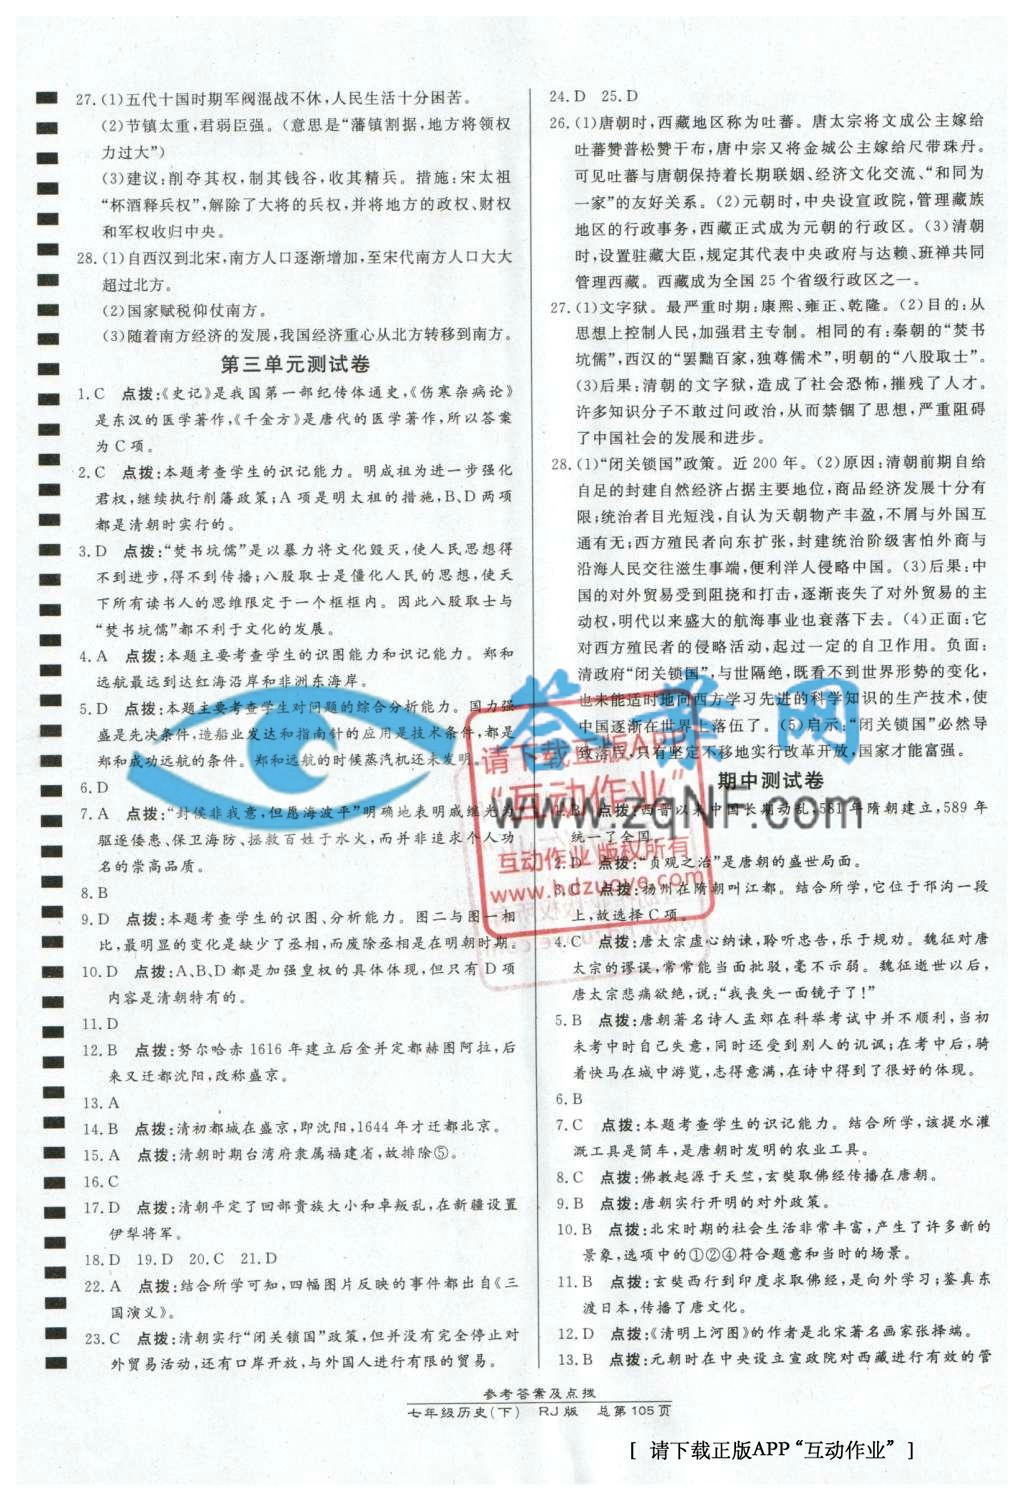 27.(1)五代十国时期军阀混战不休,人民生活十分困苦。
(2)节镇太重,君弱臣强。(意思是“藩镇割据,地方将领权
力过大”)
(3)建议:削夺其权,制其钱谷,收其精兵。措施:宋太祖
“杯酒释兵权”,解除了大将的兵权,并将地方的政权、财权
和军权收归中央。
28.(1)自西汉到北宋,南方人口逐渐增加,至宋代南方人口大大
超过北方。
(2)国家赋税仰仗南方。
(3)随着南方经济的发展,我国经济重心从北方转移到南方。
第三单元测试卷
1.C 点拨:《史记》是我国第一部纪传体通史,《伤寒杂病论》
是东汉的医学著作,《千金方》是唐代的医学著作,所以答案
为 C 项。
2.C 点拨:本题考查学生的识记能力。明成祖为进一步强化
君权,继续执行削藩政策;A 项是明太祖的措施,B、D 两项
都是清朝时实行的。
3.D 点拨:“焚书坑儒”是以暴力将文化毁灭,使人民思想得
不到进步,得不到传播;八股取士是僵化人民的思想,使天
下所有读书人的思维限定于一个框框内。因此八股取士与
“焚书坑儒”都不利于文化的发展。
4.A 点拨:本题主要考查学生的识图能力和识记能力。郑和
远航最远到达红海沿岸和非洲东海岸。
5.D 点拨:本题主要考查学生对问题的综合分析能力。国力强
盛是先决条件,造船业发达和指南针的应用是技术条件,都是
郑和成功远航的条件。郑和远航的时候蒸汽机还未发明。
6.D
7.A 点拨:“封侯非我意,但愿海波平”明确地表明戚继光为
驱逐倭患、保卫海防、拯救百姓于水火,而并非追求个人功
名的崇高品质。
8.B
9.D 点拨:本题考查学生的识图、分析能力。图二与图一相
比,最明显的变化是缺少了丞相,而废除丞相是在明朝时期。
10.D 点拨:A、B、D 都是加强皇权的具体体现,但只有 D 项
内容是清朝特有的。
11.D
12.B 点拨:努尔哈赤 1616 年建立后金并定都赫图阿拉,后
来又迁都沈阳,改称盛京。
13.A
14.B 点拨:清初都城在盛京,即沈阳,1644 年才迁都北京。
15.A 点拨:清朝时期台湾府隶属福建省,故排除⑤。
16.C
17.D 点拨:清朝平定了回部贵族大小和卓叛乱,在新疆设置
伊犁将军。
18.D 19.D 20.C 21.D
22.A 点拨:结合所学可知,四幅图片反映的事件都出自《三
国演义》。
23.C 点拨:清朝实行“闭关锁国”政策,但并没有完全停止对
外贸易活动,还有口岸开放,与外国人进行有限的贸易。
24.D 25.D
26.(1)唐朝时,西藏地区称为吐蕃。唐太宗将文成公主嫁给
吐蕃赞普松赞干布,唐中宗又将金城公主嫁给尺带珠丹。
可见吐蕃与唐朝保持着长期联姻、经济文化交流、“和同为
一家”的友好关系。(2)元朝时,中央设宣政院,管理藏族
地区的行政事务,西藏正式成为元朝的行政区。(3)清朝
时,设置驻藏大臣,规定其代表中央政府与达赖、班禅共同
管理西藏。西藏成为全国 25 个省级行政区之一。
27.(1)文字狱。最严重时期:康熙、雍正、乾隆。(2)目的:从
思想上控制人民,加强君主专制。相同的有:秦朝的“焚书
坑儒”,西汉的“罢黜百家,独尊儒术”,明朝的“八股取士”。
(3)后果:清朝的文字狱,造成了社会恐怖,摧残了人才。
许多知识分子不敢过问政治,从而禁锢了思想,严重阻碍
了中国社会的发展和进步。
28.(1)“闭关锁国”政策。近 200 年。(2)原因:清朝前期自给
自足的封建自然经济占据主要地位,商品经济发展十分有
限;统治者目光短浅,自认为天朝物产丰盈,不屑与外国互
通有无;西方殖民者向东扩张,封建统治阶级害怕外商与
沿海人民交往滋生事端,便利洋人侵略中国。(3)后果:中
国的对外贸易受到阻挠和打击,逐渐丧失了对外贸易的主
动权,明代以来盛大的航海事业也衰落下去。(4)正面:它
对西方殖民者的侵略活动,起过一定的自卫作用。负面:
清政府“闭关锁国”,与世隔绝,既看不到世界形势的变化,
也未能适时地向西方学习先进的科学知识的生产技术,使
中国逐渐在世界上落伍了。(5)启示:“闭关锁国”必然导
致落后,只有坚定不移地实行改革开放,国家才能富强。
期中测试卷
1.B 点拨:西晋以来中国长期动乱;581 年隋朝建立,589 年
统一了全国。
2.D 点拨:“贞观之治”是唐朝的盛世局面。
3.C 点拨:扬州在隋朝叫江都。结合所学,它位于邗沟一段
上,故选择 C 项。
4.C 点拨:唐太宗虚心纳谏,聆听忠告,乐于规劝。魏征对唐
太宗的谬误,常常能当面批驳,毫不示弱。魏征逝世以后,
唐太宗悲痛欲绝,说:“我丧失一面镜子了!”
5.B 点拨:唐朝著名诗人孟郊在科举考试中并不顺利,当初
未考中时自己失意,同时还受到别人的讥讽;在考中后,骑
着快马在城中游览,志得意满,在诗中得到了很好的体现。
6.B
7.C 点拨:本题考查学生的识记能力。结合所学,该提水灌
溉工具是筒车,是唐朝时发明的农业工具。
8.C 点拨:佛教起源于天竺,玄奘取佛经传播在唐朝。
9.B 点拨:唐朝实行开明的对外政策。
10.B 点拨:北宋时期的社会生活非常丰富,产生了许多新的
景象,选项中的①②④符合题意和当时的场景。
11.B 点拨:玄奘西行到印度求取佛经,是向外学习;鉴真东
渡日本,传播了唐文化。
12.D 点拨:《清明上河图》的作者是北宋著名画家张择端。
13.B 点拨:元朝时在中央设立宣政院对西藏进行有效的管
答案网
www.zqNF.com
请下载正版APP
“互动作业”
互动作业 版权所有
www.hdzuoye.com
参考答案及点拨
七年级历史(下) RJ版 总第105页
[ 请下载正版APP“互动作业” ]